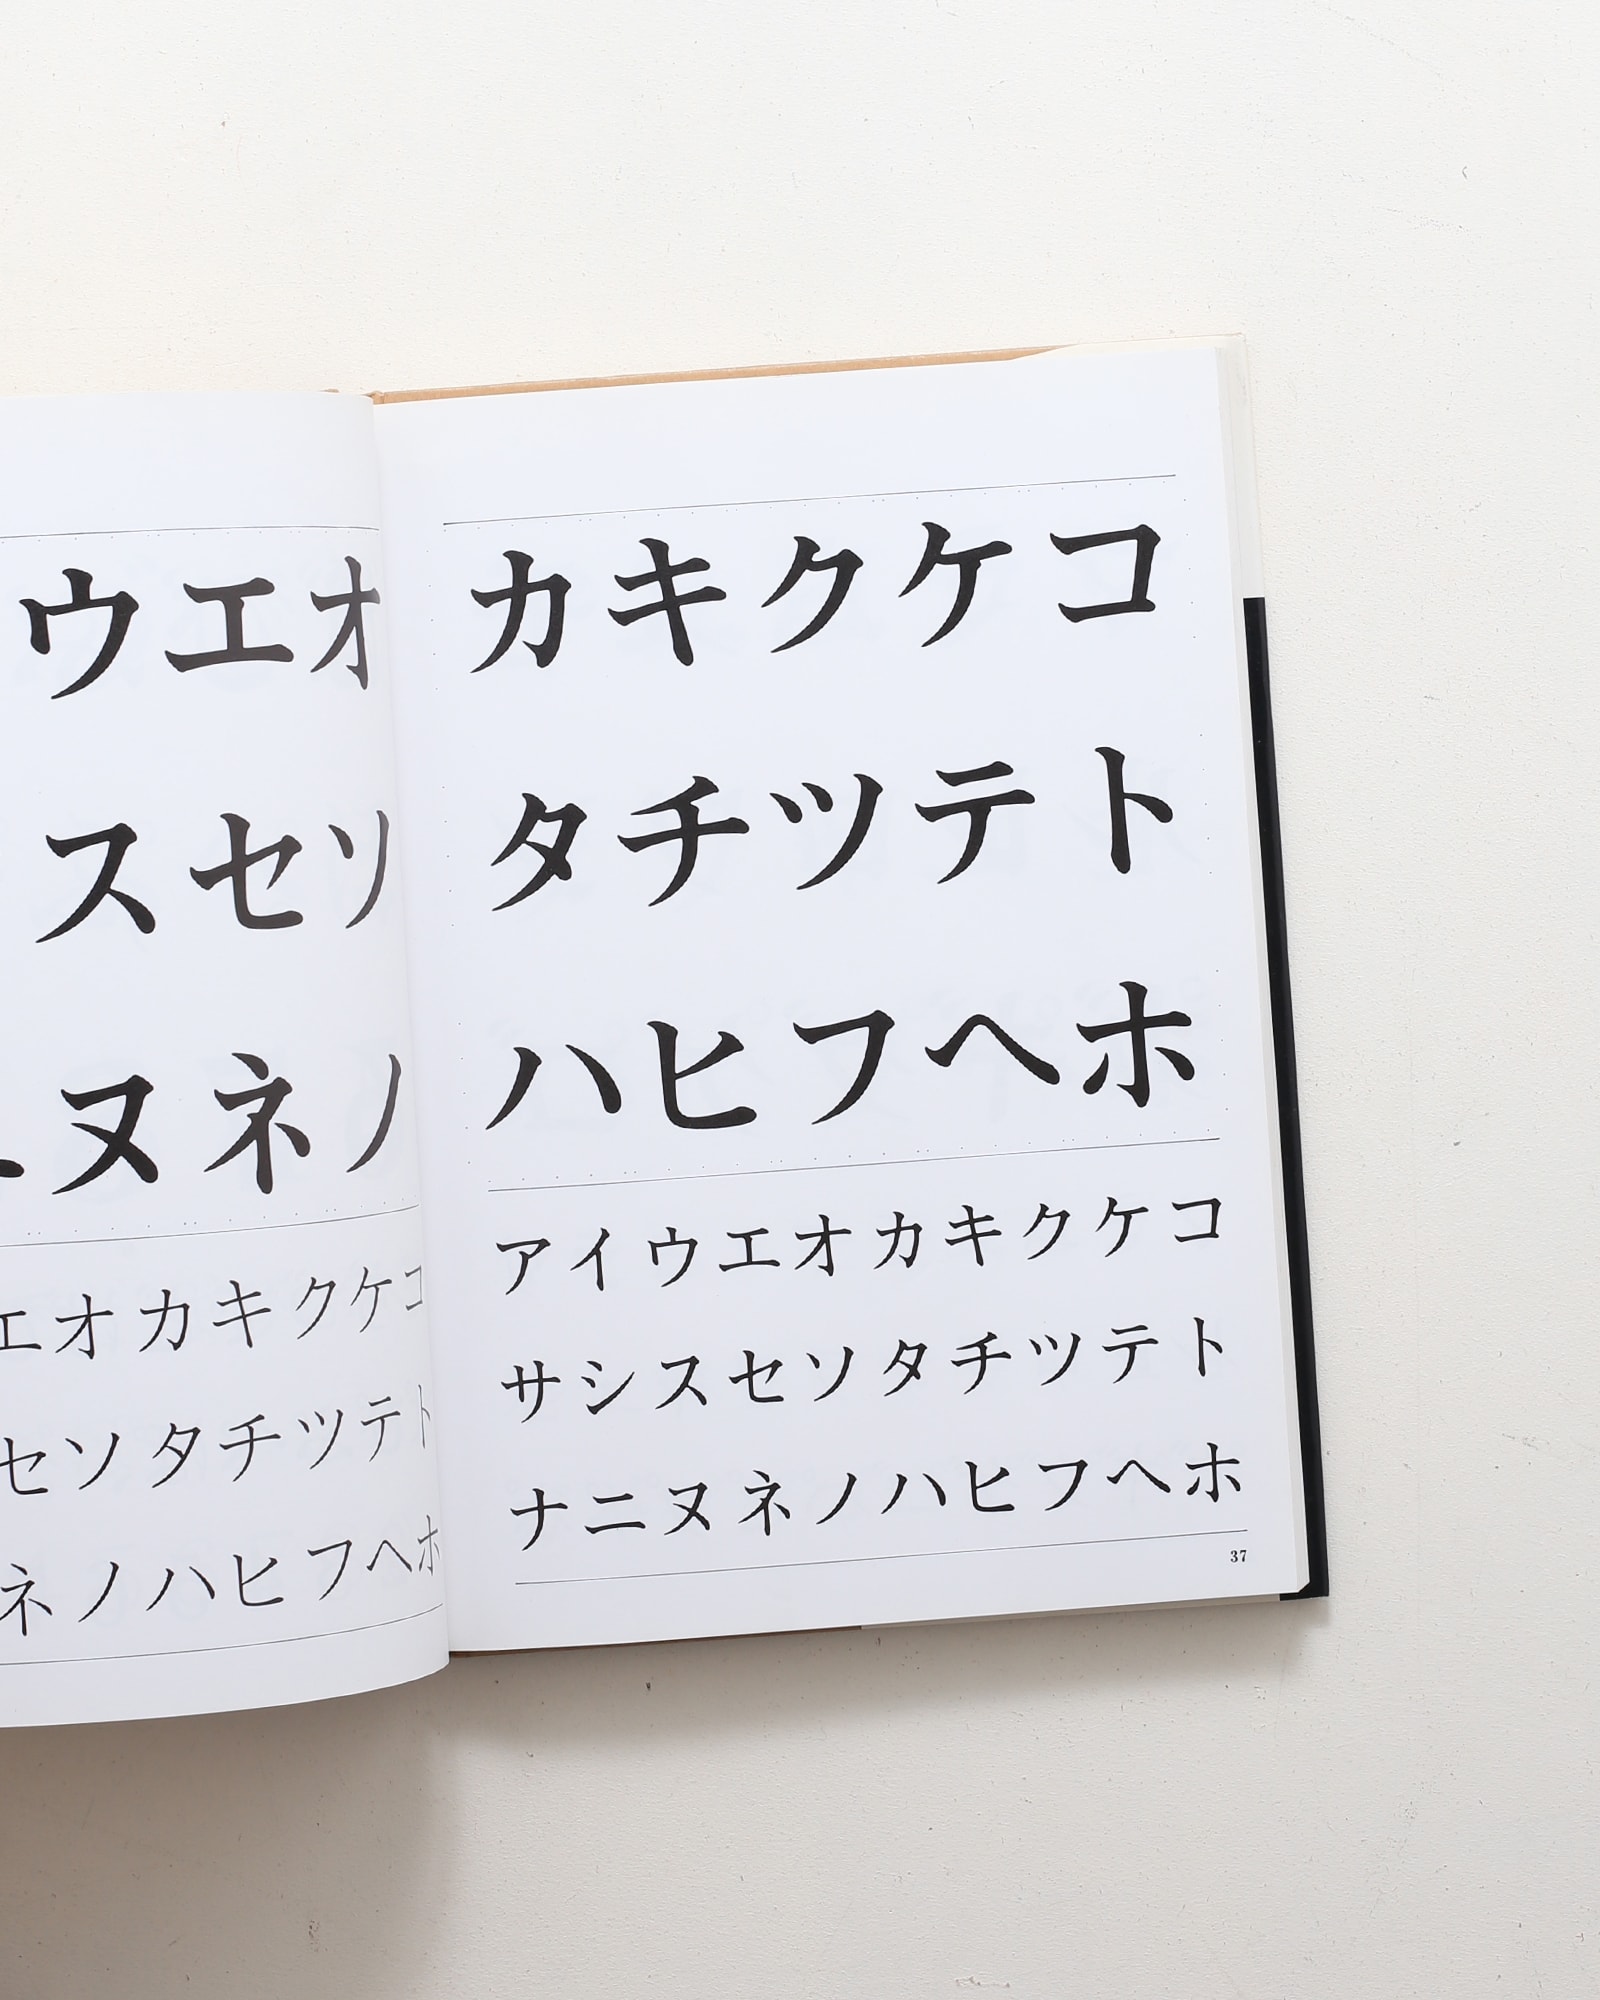 ウエオ
スセソ
ヌネノ
エオカキクケコ
セソタチツテト
ネノハヒフヘホ
カキクケコ
タチツテト
ハヒフヘホ
アイウエオカキクケコ
サシスセソタチツテト
ナニヌネノハヒフヘホ
37